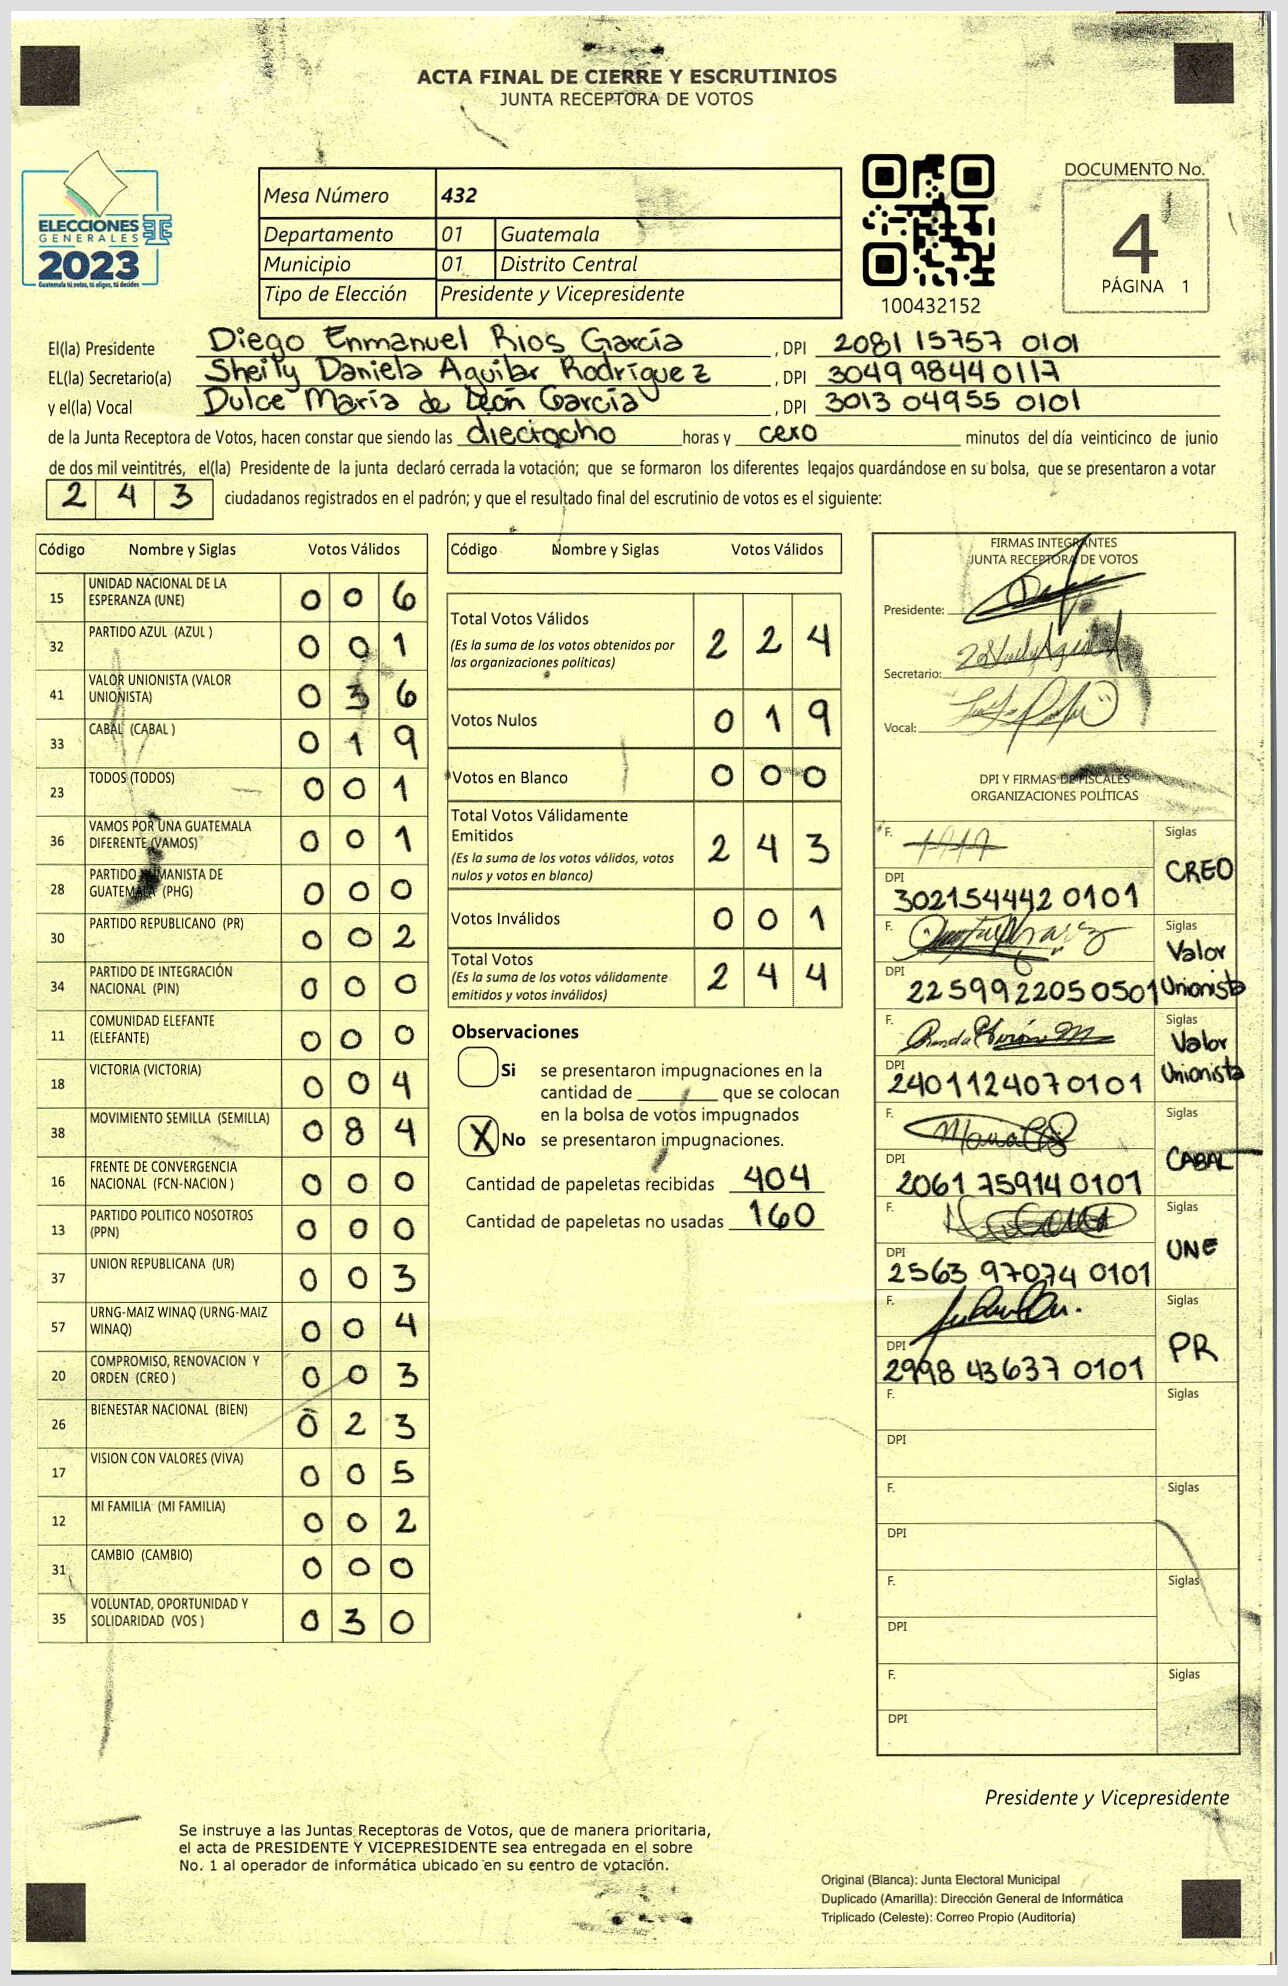 ACTA FINAL DE CIERRE Y ESCRUTINIOS
JUNTA RECEPTORA DE VOTOS
ELECCIONES
GENERALES
2023
Guatemala tú votas, tú eliges, tú decides
Mesa Número 432
Departamento 01 Guatemala
Municipio 01 Distrito Central
Tipo de Elección Presidente y Vicepresidente
100432152
DOCUMENTO No.
4
PÁGINA 1
El(la) Presidente Diego Enmanuel Rios García , DPI 2081 15757 0101
EL(la) Secretario(a) Sheily Daniela Aguilar Rodríguez , DPI 3049 98440117
y el(la) Vocal Dulce María de León García , DPI 3013 04955 0101
de la Junta Receptora de Votos, hacen constar que siendo las dieciocho horas y cero minutos del día veinticinco de junio
de dos mil veintitrés, el(la) Presidente de la junta declaró cerrada la votación; que se formaron los diferentes legajos guardándose en su bolsa, que se presentaron a votar
2 4 3 ciudadanos registrados en el padrón; y que el resultado final del escrutinio de votos es el siguiente:
Código Nombre y Siglas Votos Válidos
15 UNIDAD NACIONAL DE LA ESPERANZA (UNE) 0 0 6
32 PARTIDO AZUL (AZUL ) 0 0 1
41 VALOR UNIONISTA (VALOR UNIONISTA) 0 3 6
33 CABAL (CABAL ) 0 1 9
23 TODOS (TODOS) 0 0 1
36 VAMOS POR UNA GUATEMALA DIFERENTE (VAMOS) 0 0 1
28 PARTIDO HUMANISTA DE GUATEMALA (PHG) 0 0 0
30 PARTIDO REPUBLICANO (PR) 0 0 2
34 PARTIDO DE INTEGRACIÓN NACIONAL (PIN) 0 0 0
11 COMUNIDAD ELEFANTE (ELEFANTE) 0 0 0
18 VICTORIA (VICTORIA) 0 0 4
38 MOVIMIENTO SEMILLA (SEMILLA) 0 8 4
16 FRENTE DE CONVERGENCIA NACIONAL (FCN-NACION ) 0 0 0
13 PARTIDO POLITICO NOSOTROS (PPN) 0 0 0
37 UNION REPUBLICANA (UR) 0 0 3
57 URNG-MAIZ WINAQ (URNG-MAIZ WINAQ) 0 0 4
20 COMPROMISO, RENOVACION Y ORDEN (CREO ) 0 0 3
26 BIENESTAR NACIONAL (BIEN) 0 2 3
17 VISION CON VALORES (VIVA) 0 0 5
12 MI FAMILIA (MI FAMILIA) 0 0 2
31 CAMBIO (CAMBIO) 0 0 0
35 VOLUNTAD, OPORTUNIDAD Y SOLIDARIDAD (VOS ) 0 3 0
Código Nombre y Siglas Votos Válidos
Total Votos Válidos 2 2 4
(Es la suma de los votos obtenidos por las organizaciones políticas)
Votos Nulos 0 1 9
Votos en Blanco 0 0 0
Total Votos Válidamente Emitidos 2 4 3
(Es la suma de los votos válidos, votos nulos y votos en blanco)
Votos Inválidos 0 0 1
Total Votos 2 4 4
(Es la suma de los votos válidamente emitidos y votos inválidos)
Observaciones
Si se presentaron impugnaciones en la
cantidad de ________ que se colocan
en la bolsa de votos impugnados
X No se presentaron impugnaciones.
Cantidad de papeletas recibidas 404
Cantidad de papeletas no usadas 160
FIRMAS INTEGRANTES
JUNTA RECEPTORA DE VOTOS
Presidente:
Secretario:
Vocal:
DPI Y FIRMAS DE FISCALES
ORGANIZACIONES POLÍTICAS
F. Siglas CREO
DPI 302154442 0101
F. Siglas Valor Unionista
DPI 2259922050501
F. Siglas Valor Unionista
DPI 2401124070101
F. Siglas CABAL
DPI 2061 75914 0101
F. Siglas UNE
DPI 2563 97074 0101
F. Siglas PR
DPI 2998 43637 0101
F. Siglas
DPI
F. Siglas
DPI
F. Siglas
DPI
F. Siglas
DPI
Presidente y Vicepresidente
Se instruye a las Juntas Receptoras de Votos, que de manera prioritaria,
el acta de PRESIDENTE Y VICEPRESIDENTE sea entregada en el sobre
No. 1 al operador de informática ubicado en su centro de votación.
Original (Blanca): Junta Electoral Municipal
Duplicado (Amarilla): Dirección General de Informática
Triplicado (Celeste): Correo Propio (Auditoría)